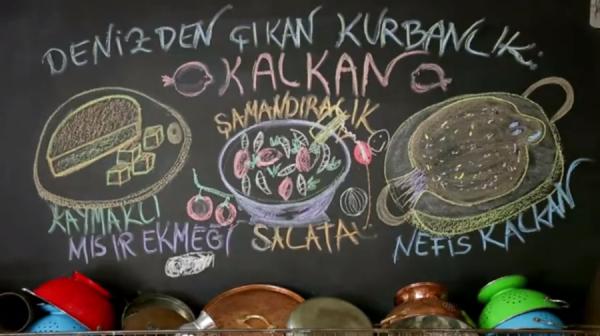 DENİZDEN ÇIKAN KURBANLIK:
KALKAN
ŞAMANDIRACIK
SALATA
KAYMAKLI
MISIR EKMEĞİ
NEFİS KALKAN